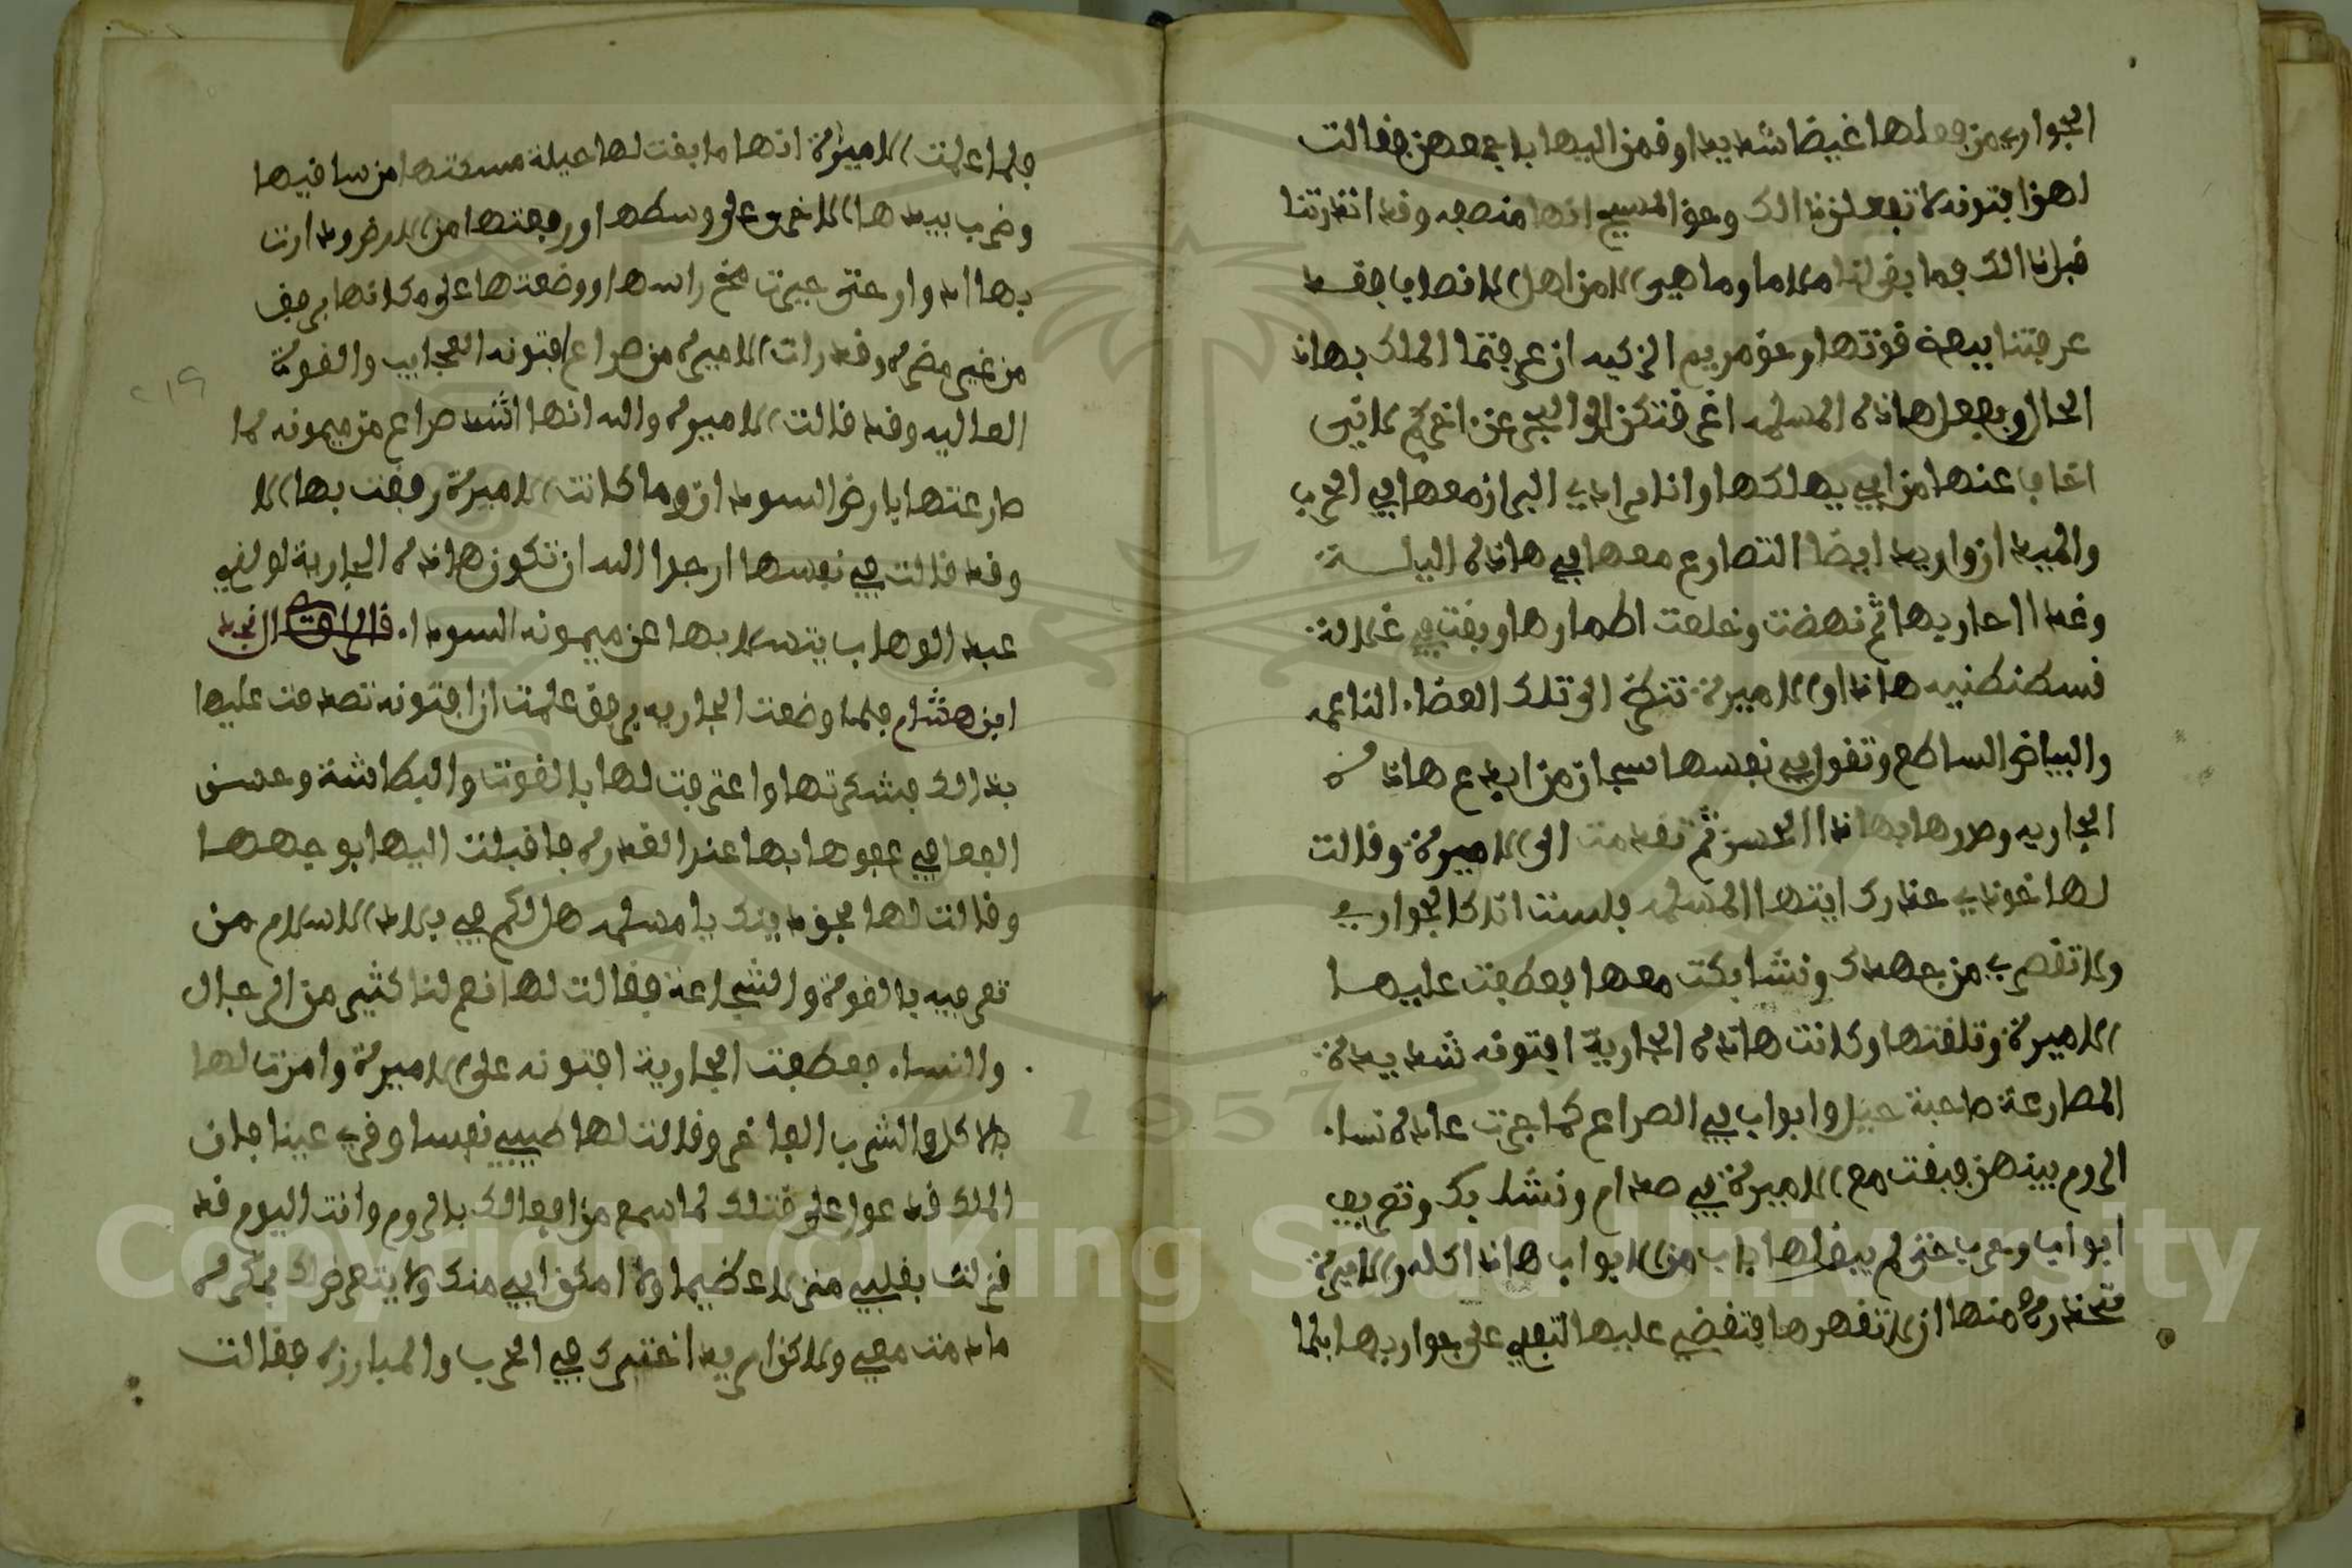 الجوار من فعلها غيضا شديدا وقمن اليها باجمعهن فقالت
لهن افتونه لا تفعلن ذالك وحق المسيح انها منصفه وقد انذرتنا
قبل ذالك فما بقى لنا ملاما وما هي الا من اهل الانصاف فقد
عرفتنا بيدة قوتها وحق مريم الزكيه ان عرفتما الملك بهاذا
الحال وبفعل هاذه المسلمه
اخاف عنها من ابي يهلكها وانا مرادي البراز معها في الحرب
والميدان واريد ايضا التصارع معها في هاذه اليلة
وغدا احاربها ثم نهضت وخلعت اطمارها وبقت في غلالة
قسطنطنيه هاذا والاميرة تنظر الى تلك العضاء الناعمه
والبياض الساطع وتقول في نفسها سبحان من ابدع هاذه
الجاريه وصورها بهاذا الحسن ثم تقدمت الى الاميرة وقالت
لها خوذي حذرك ايتها المسلمه فلست انا كالجواري
ولا تقصري من جهدك وتشابكت معها فعطفت عليها
الاميرة وتلقتها وكانت هاذه الجارية افتونه شديدة
المصارعة صاحبة حيل وابواب في الصراع كما جرت عادة نساء
الروم بينهن فبقت مع الاميرة في صدام وتشابك وتعريف
ابواب وحرب حتى لم يبقا لها باب من الابواب هاذا كله والاميرة
متحذرة منها ان لا تقهرها فتقضي عليها التعلى على جواريها فلما
فلما علمت الاميرة انها ما بقت لها حيلة مسكتها من ساقيها
وضرب بيدها الاخرى على وسطها ورفعتها من الارض ودارت
بها ادوار حتى حيرت مخ راسها ووضعتها على مكانها برفق
من غير مضره وقد رات الاميره من صراع افتونه العجايب والقوة
العاليه وقد قالت الاميره والله انها اشد صراع من ميمونه لما
صارعتها بارض السودان وما كانت الاميرة رفقت بها الا
وقد قالت في نفسها ارجوا الله ان تكون هاذه الجارية لولدي
عبد الوهاب يتسلا بها عن ميمونه السودا. قال الراوي نجد
ابن هشام فلما وضعت الجاريه برفق علمت ان افتونه تصدقت عليها
بذالك فشكرتها واعترفت لها بالقوت والبطاشة وحسن
الفعا في عفوها بها عند القدره فاقبلت اليها بوجهها
وقالت لها بحق دينك يا مسلمه هل لكم في بلاد الاسلام من
تعرفيه بالقوة والشجاعة فقالت لها نعم لنا كثير من الرجال
والنساء. فعطفت الجارية افتونه على الاميرة وامرت لها
بالاكل والشرب الفاخر وقالت لها طيبي نفسا وقري عينا فان
الملك قد عول على قتلك لما سمع من افعالك بالروم وانت اليوم قد
نزلت بقلبي منزلا عظيما ولا امكن ابي منك ولا يتعرضك بمكره
ما دمت معي ولاكن اريد اختبرك في الحرب والمبارزه فقالت
Copyright © King Saud University
1957